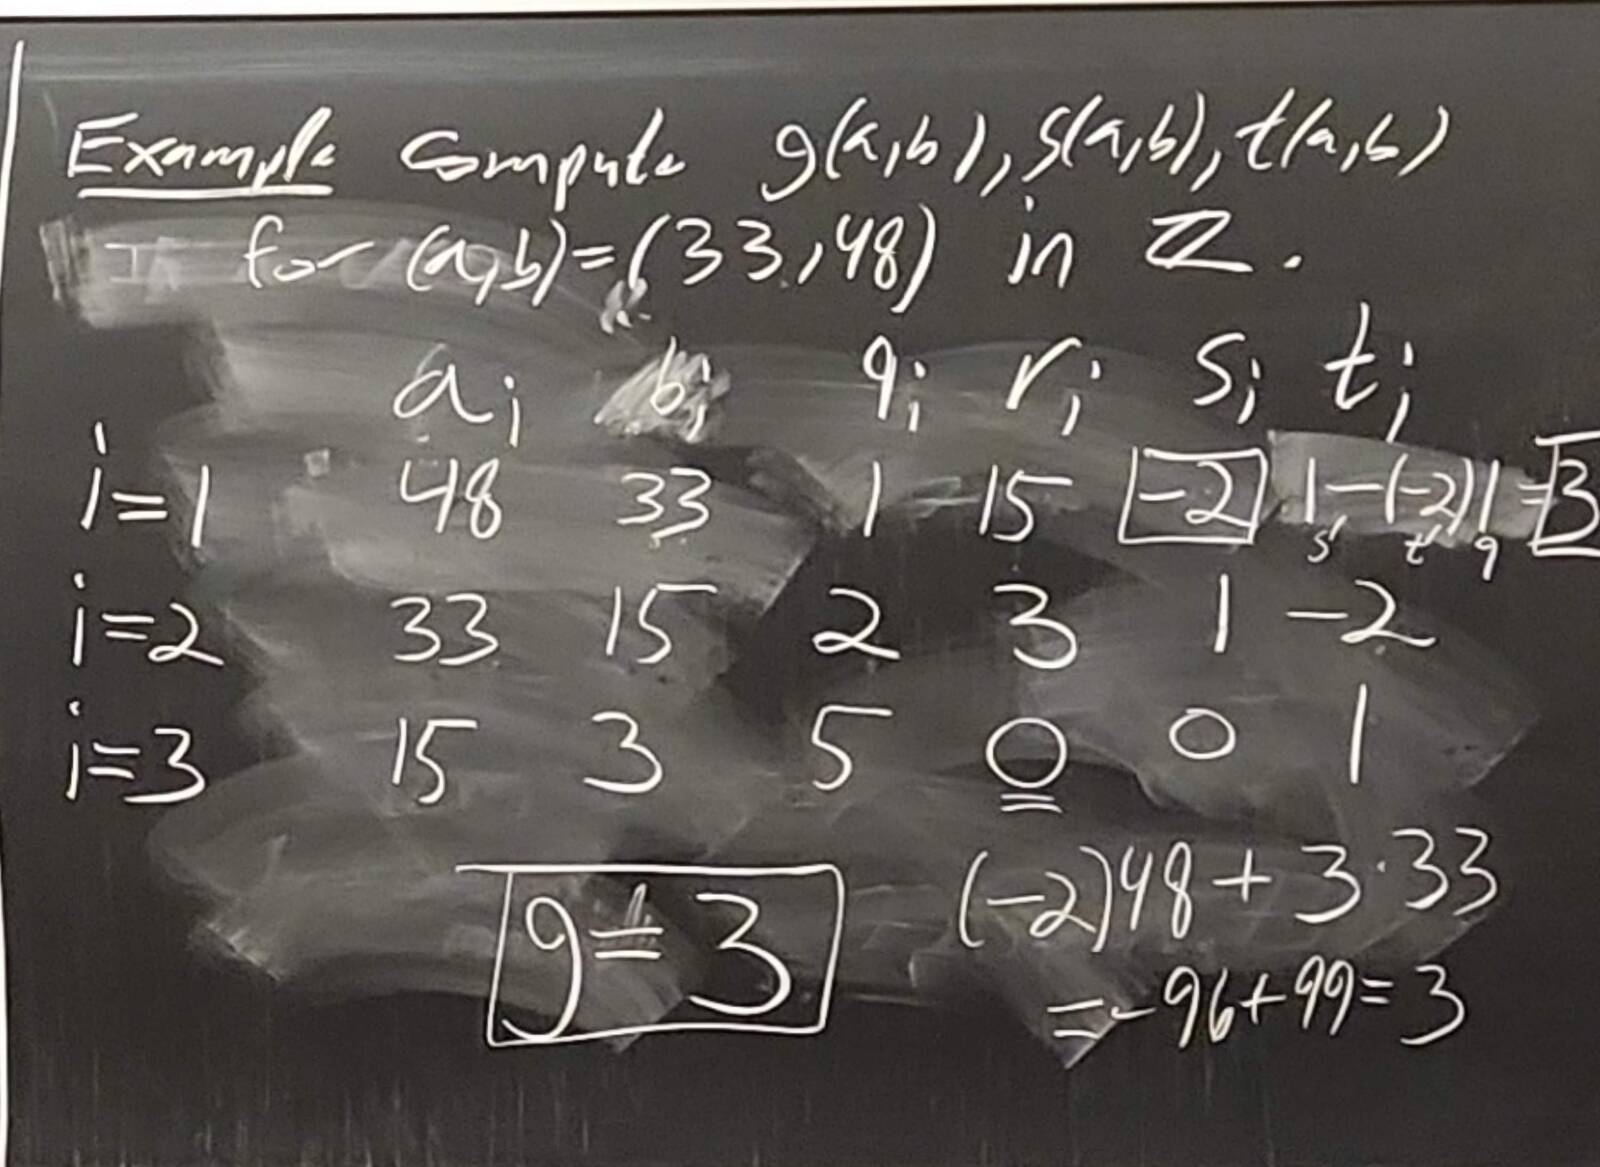 Example Compute g(a,b), s(a,b), t(a,b)
for (a,b)=(33,48) in ℤ.
a_i b_i q_i r_i s_i t_i
i=1 48 33 1 15 -2 1-(-2)1=3
s' t' q
i=2 33 15 2 3 1 -2
i=3 15 3 5 0 0 1
g=3
(-2)48+3·33
=-96+99=3